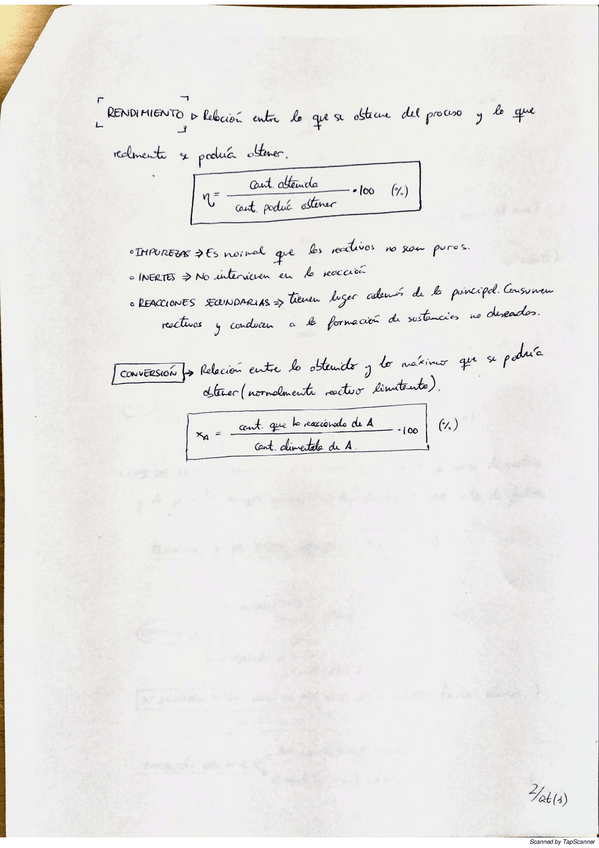 RENDIMIENTO ▷ Relación entre lo que se obtiene del proceso y lo que
realmente se podría obtener.
η = cant. obtenida / cant. podría obtener · 100 (%)
∘ IMPUREZAS ⇒ Es normal que los reactivos no sean puros.
∘ INERTES ⇒ No intervienen en la reacción
∘ REACCIONES SECUNDARIAS ⇒ tienen lugar además de la principal. Consumen
reactivos y conducen a la formación de sustancias no deseadas.
CONVERSIÓN → Relación entre lo obtenido y lo máximo que se podría
obtener (normalmente reactivo limitante).
x_A = cant. que ha reaccionado de A / cant. alimentada de A · 100 (%)
2/
Scanned by TapScanner